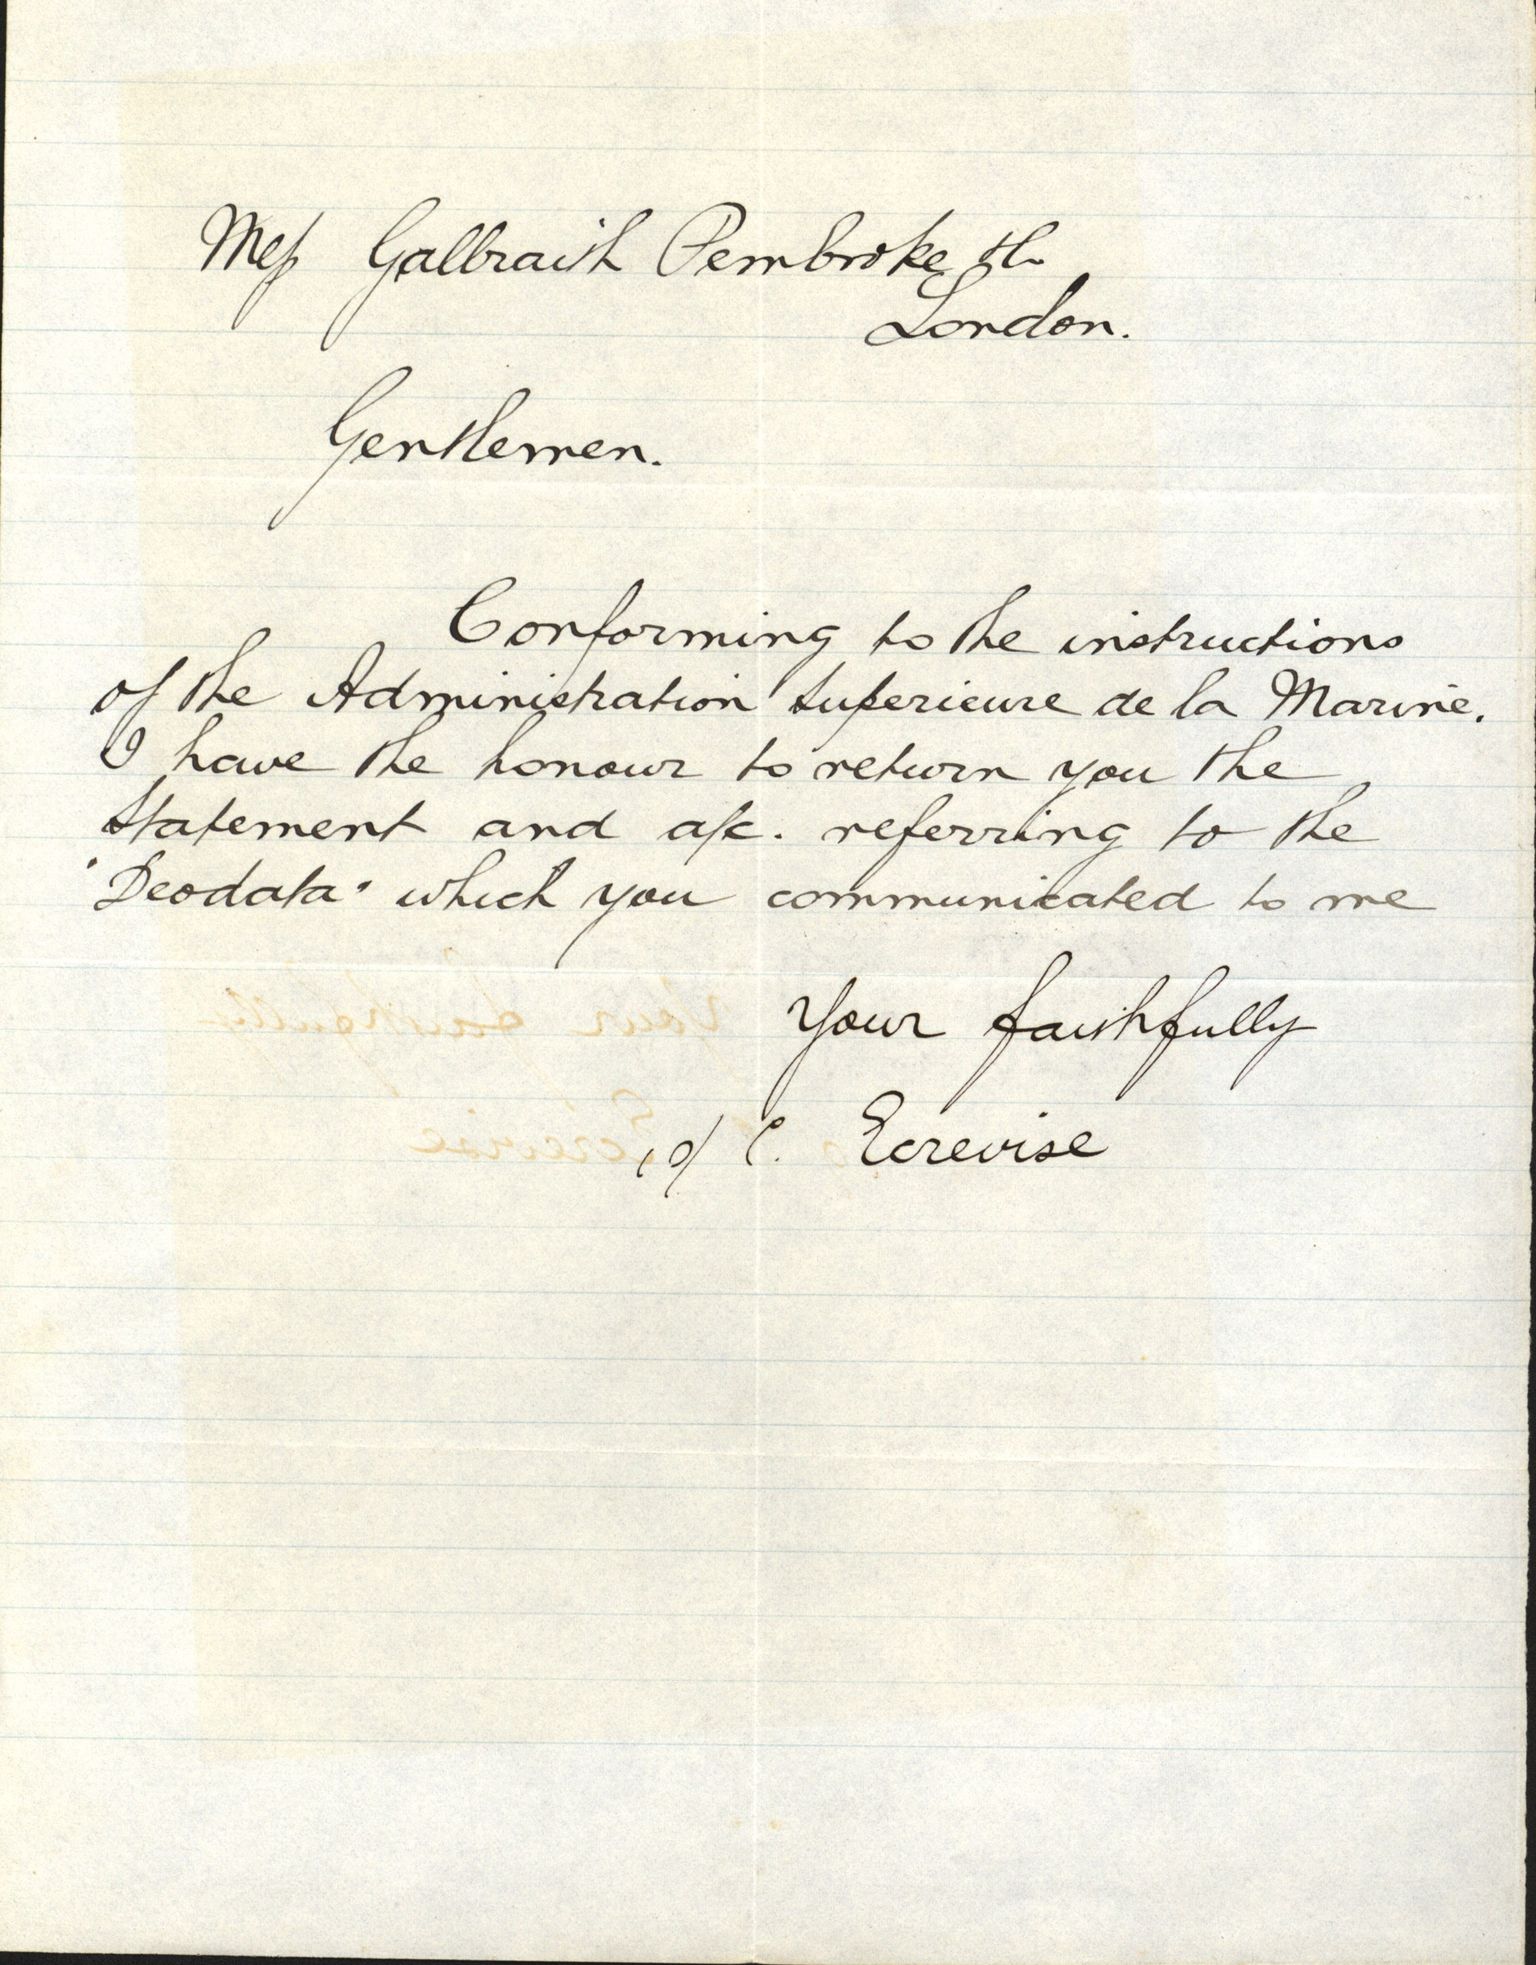 Mess Galbraith Pembroke &c
London.
Gentlemen.
Conforming to the instructions
of the Administration superieure de la Marine.
I have the honour to return you the
statement and a/c. referring to the
"Deodata" which you communicated to me
Your faithfully
s/ C. Ecrevise